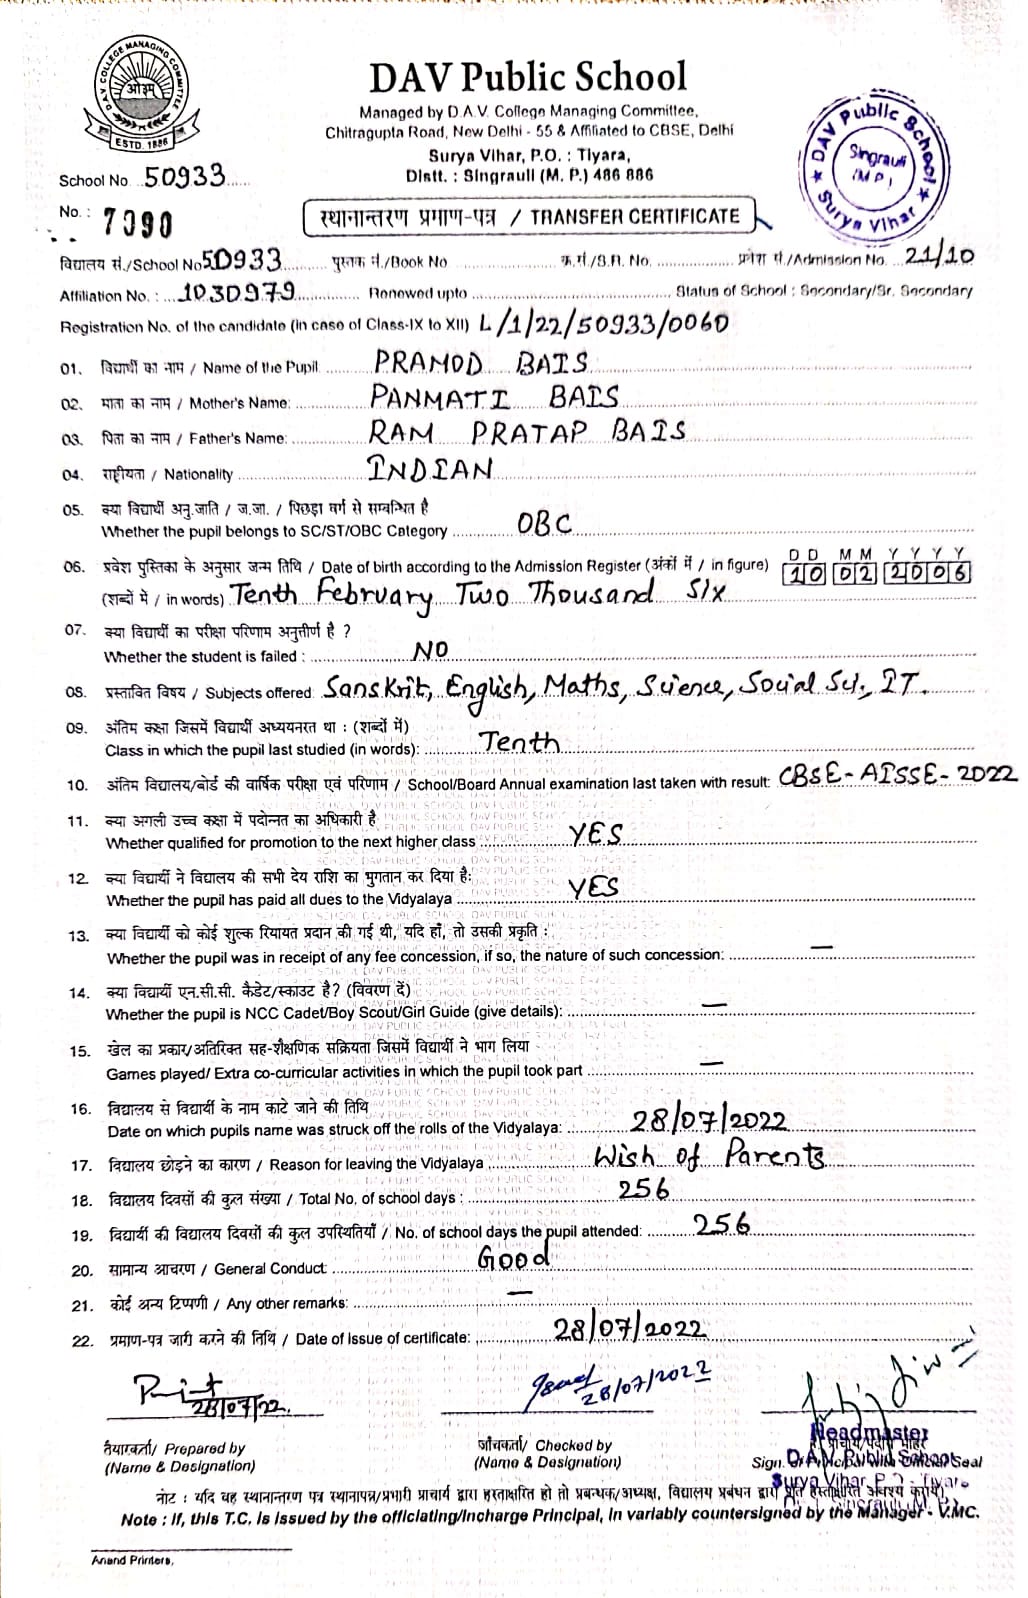 D.A.V. COLLEGE MANAGING COMMITTEE
ओ३म्
ESTD. 1886
DAV Public School
Managed by D.A.V. College Managing Committee,
Chitragupta Road, New Delhi - 55 & Affiliated to CBSE, Delhi
Surya Vihar, P.O. : Tiyara,
Distt. : Singrauli (M. P.) 486 886
DAV Public School
Singrauli
(M P)
Surya Vihar
School No. 50933
No. : 7090
स्थानान्तरण प्रमाण-पत्र / TRANSFER CERTIFICATE
विद्यालय सं./School No 50933 पुस्तक सं./Book No. क्र.सं./S.R. No. प्रवेश सं./Admission No. 21/10
Affiliation No. : 1030979 Renewed upto Status of School : Secondary/Sr. Secondary
Registration No. of the candidate (in case of Class-IX to XII) L/1/22/50933/0060
01. विद्यार्थी का नाम / Name of the Pupil PRAMOD BAIS
02. माता का नाम / Mother's Name: PANMATI BAIS
03. पिता का नाम / Father's Name: RAM PRATAP BAIS
04. राष्ट्रीयता / Nationality INDIAN
05. क्या विद्यार्थी अनु.जाति / ज.जा. / पिछड़ा वर्ग से सम्बन्धित है
Whether the pupil belongs to SC/ST/OBC Category OBC
D D M M Y Y Y Y
06. प्रवेश पुस्तिका के अनुसार जन्म तिथि / Date of birth according to the Admission Register (अंकों में / in figure) 10 02 2006
(शब्दों में / in words) Tenth February Two Thousand Six
07. क्या विद्यार्थी का परीक्षा परिणाम अनुत्तीर्ण है ?
Whether the student is failed : NO
08. प्रस्तावित विषय / Subjects offered: Sanskrit, English, Maths, Science, Social Sci., IT.
09. अंतिम कक्षा जिसमें विद्यार्थी अध्ययनरत था : (शब्दों में)
Class in which the pupil last studied (in words): Tenth
10. अंतिम विद्यालय/बोर्ड की वार्षिक परीक्षा एवं परिणाम / School/Board Annual examination last taken with result: CBSE - AISSE - 2022
11. क्या अगली उच्च कक्षा में पदोन्नत का अधिकारी है.
Whether qualified for promotion to the next higher class YES
12. क्या विद्यार्थी ने विद्यालय की सभी देय राशि का भुगतान कर दिया है:
Whether the pupil has paid all dues to the Vidyalaya YES
13. क्या विद्यार्थी को कोई शुल्क रियायत प्रदान की गई थी, यदि हाँ, तो उसकी प्रकृति :
Whether the pupil was in receipt of any fee concession, if so, the nature of such concession: —
14. क्या विद्यार्थी एन.सी.सी. कैडेट/स्काउट है? (विवरण दें)
Whether the pupil is NCC Cadet/Boy Scout/Girl Guide (give details): —
15. खेल का प्रकार/अतिरिक्त सह-शैक्षणिक सक्रियता जिसमें विद्यार्थी ने भाग लिया
Games played/ Extra co-curricular activities in which the pupil took part —
16. विद्यालय से विद्यार्थी के नाम काटे जाने की तिथि
Date on which pupils name was struck off the rolls of the Vidyalaya: 28/07/2022
17. विद्यालय छोड़ने का कारण / Reason for leaving the Vidyalaya Wish of Parents
18. विद्यालय दिवसों की कुल संख्या / Total No. of school days : 256
19. विद्यार्थी की विद्यालय दिवसों की कुल उपस्थितियाँ / No. of school days the pupil attended: 256
20. सामान्य आचरण / General Conduct: Good
21. कोई अन्य टिप्पणी / Any other remarks: —
22. प्रमाण-पत्र जारी करने की तिथि / Date of issue of certificate: 28/07/2022
28/07/22. 28/07/2022
तैयारकर्ता/ Prepared by जाँचकर्ता/ Checked by Headmaster
(Name & Designation) (Name & Designation) Sign. D.A.V. Public School Seal
Surya Vihar, P.O. - Tiyara
नोट : यदि यह स्थानान्तरण पत्र स्थानापन्न/प्रभारी प्राचार्य द्वारा हस्ताक्षरित हो तो प्रबन्धक/अध्यक्ष, विद्यालय प्रबंधन द्वारा प्रति हस्ताक्षरित अवश्य करायें।
Note : If, this T.C. is issued by the officiating/incharge Principal, in variably countersigned by the Manager - V.MC.
Anand Printers,